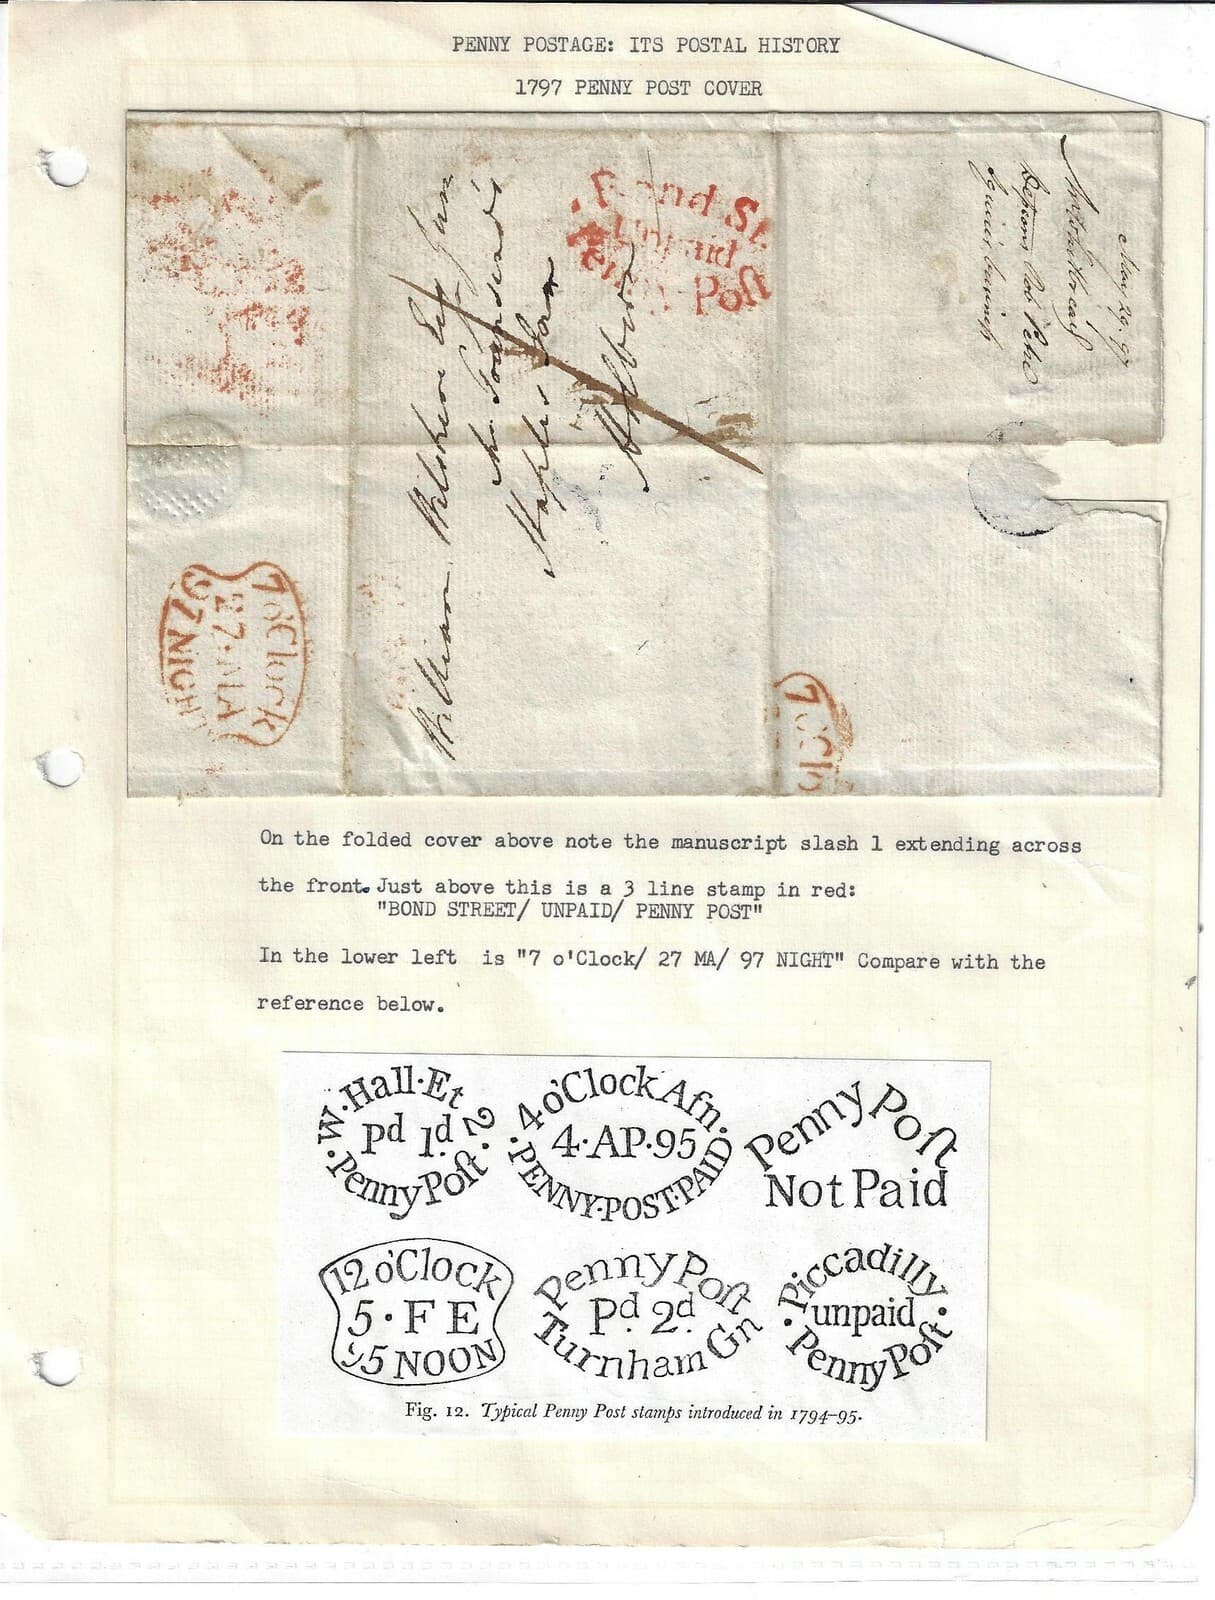 PENNY POSTAGE: ITS POSTAL HISTORY
1797 PENNY POST COVER
William Wilshere Esq Jun
Mr Townsend's
Staples Inn
Holborn
Bond St
Unpaid
Penny Post
May 29. 97
Rob Petre
7 o'Clock
27 MA
97 NIGHT
7 o'Clo
On the folded cover above note the manuscript slash 1 extending across
the front. Just above this is a 3 line stamp in red:
"BOND STREET/ UNPAID/ PENNY POST"
In the lower left is "7 o'Clock/ 27 MA/ 97 NIGHT" Compare with the
reference below.
W.Hall.Et 2.
Pd 1d
Penny Poſt
4 o'Clock Afn.
4·AP·95
PENNY·POST·PAID
Penny Poſt
Not Paid
12 o'Clock
5·FE
95 NOON
Penny Poſt
Pd. 2d.
Turnham Gn
Piccadilly
unpaid
Penny Poſt
Fig. 12. Typical Penny Post stamps introduced in 1794–95.